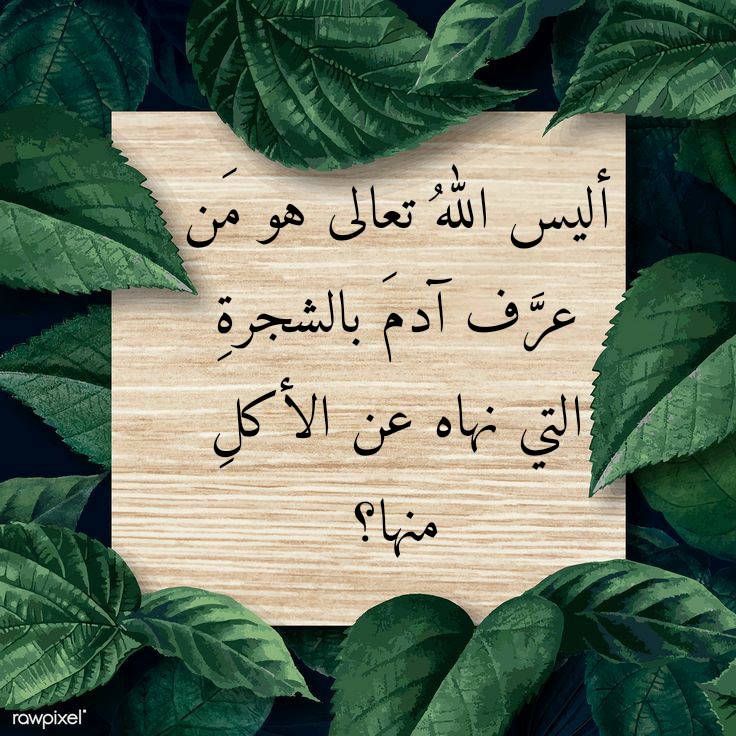 أليس اللهُ تعالى هو مَن
عرَّف آدمَ بالشجرةِ
التي نهاه عن الأكلِ
منها؟
rawpixel